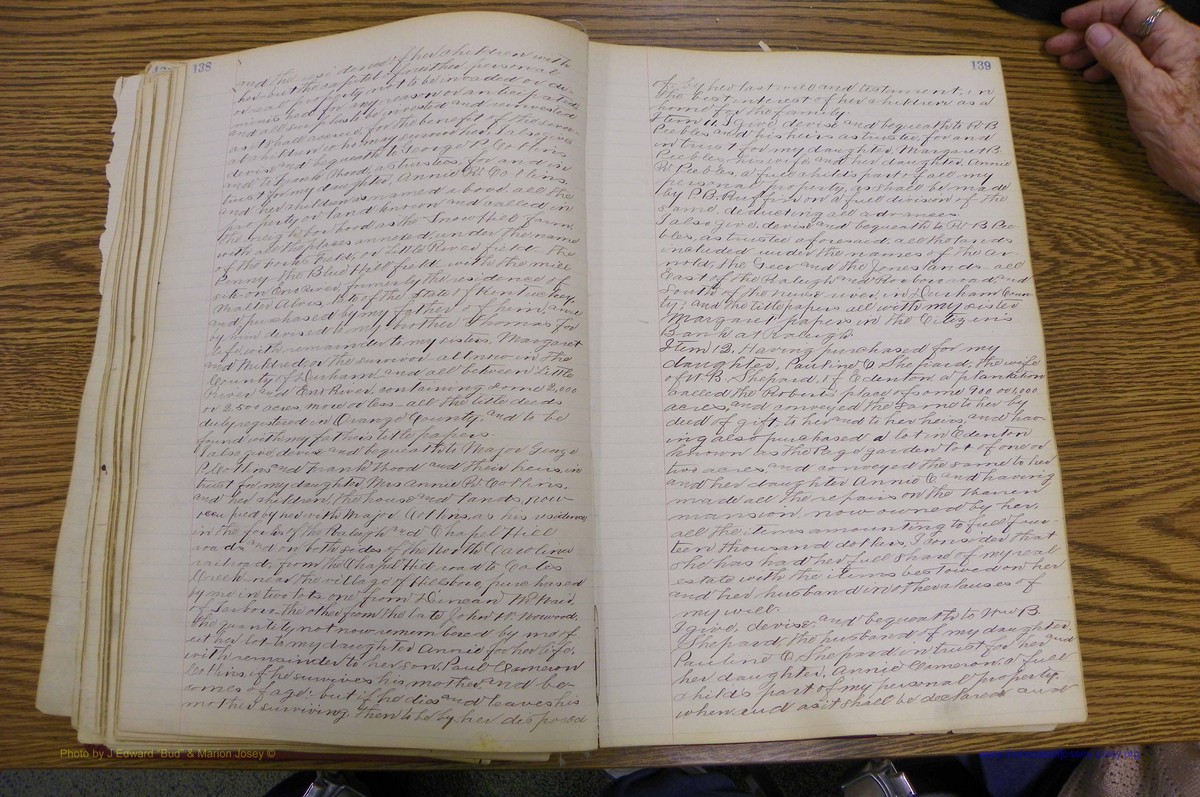 138
and the residence of her children with
her but the capital of neither personal
or real property not to be invaded or di-
minished for any reason or anticipated,
and all surplus to be invested and reinvested
as it shall accrue for the benefit of the sever-
al children to be my common heir. I also give
devise and bequeath to George P. Collins
and to Frank Hood, as trustees, for and in
trust for my daughter, Annie R. Collins
and her children as named above, all the
property or land known and called in
the neighborhood as the Snow Hill farm,
with all the places annexed under the name
of the field, or Little River field, the
Penny, the Blue Hill field with the mill
site on Eno River, formerly the residence of
Walter Alves, late of the State of Kentuckey,
and purchased by my father of him, and
by him devised to my brother Thomas for
life, with remainder to my sisters, Margaret
and Mildred, or the survivor all now in the
County of Durham and all between Little
River and Eno River, containing some 2,000
or 2,500 acres more or less - all the title deeds
duly registered in Orange County, and to be
found with my fathers title papers.
I also give devise and bequeath to Major George
P. Collins and Frank Hood and their heirs, in
trust for my daughter Mrs Annie R. Collins,
and her children, the house and lands, now
occupied by her with Major Collins, as his residence
in the forks of the Raleigh and Chapel Hill
roads and on both sides of the North Carolina
railroad, from the Chapel Hill road to Cates
Creek near the village of Hillsboro, purchased
by me in two lots one from Duncan
of Lisbon, the other from the late John W. Norwood,
the quantity not now remembered by me of
either lot to my daughter Annie for her life,
with remainder to her son, Paul Cameron
Collins, if he survives his mother, and be-
comes of age; but if he dies and leaves his
mother surviving, then to be by her disposed
139
of by her last will and testament, in
the best interest of her children as a
home for the family.
Item 11. I give devise and bequeath to R. B.
Peebles and his heirs as trustee, for and
in trust for my daughter, Margaret B.
Peebles, his wife, and her daughter, Annie
R. Peebles, a full child's part of all my
personal property, as shall be made
by P. B. Ruffin on a full division of the
same, deducting all advances.
I also give, devise and bequeath to R. B. Pee-
bles, as trustee aforesaid, all the lands
included under the names of the Ar-
nold, the Geer and the Jones lands - all
East of the Raleigh and Roxboro road and
South of the Neuse river, in Durham Coun-
ty; and the title papers all with my sister
Margaret papers in the Citizens
Bank at Raleigh.
Item 12. Having purchased for my
daughter, Pauline C. Shepard, the wife
of W. B. Shepard, of Edenton a plantation
called the Roberts place of some
acres, and conveyed the same to her by
deed of gift to her and to her heirs, and hav-
ing also purchased a lot in Edenton
known as the Page garden lot of one or
two acres, and conveyed the same to her
and her daughter Annie C. and having
made all the repairs on the
mansion now owned by her,
all the items amounting to full four-
teen thousand dollars, I consider that
she has had her full share of my real
estate with the items bestowed on her
and her husband in other clauses of
my will.
I give, devise and bequeath to Wm B.
Shepard, the husband of my daughter,
Pauline C. Shepard in trust for her and
her daughter, Annie Cameron, a full
child's part of my personal property,
when and as it shall be declared and
Photo by J Edward "Bud" & Marion Josey ©